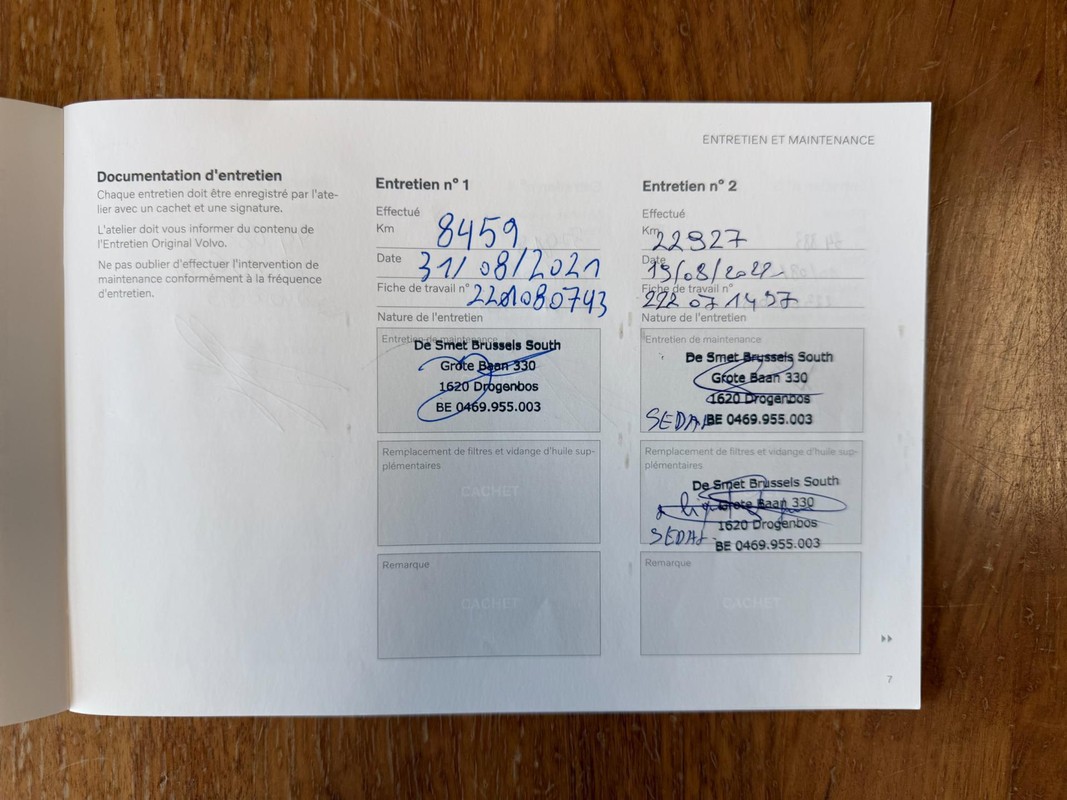 ENTRETIEN ET MAINTENANCE
Documentation d'entretien
Chaque entretien doit être enregistré par l'ate-
lier avec un cachet et une signature.
L'atelier doit vous informer du contenu de
l'Entretien Original Volvo.
Ne pas oublier d'effectuer l'intervention de
maintenance conformément à la fréquence
d'entretien.
Entretien n° 1
Effectué
Km 8459
Date 31/08/2021
Fiche de travail n°
Nature de l'entretien
Entretien de maintenance
De Smet Brussels South
Grote Baan 330
1620 Drogenbos
BE 0469.955.003
Remplacement de filtres et vidange d'huile sup-
plémentaires
CACHET
Remarque
CACHET
Entretien n° 2
Effectué
Km 22927
Date 19/08/2022
Fiche de travail n° 222071457
Nature de l'entretien
Entretien de maintenance
De Smet Brussels South
Grote Baan 330
1620 Drogenbos
BE 0469.955.003
Remplacement de filtres et vidange d'huile sup-
plémentaires
De Smet Brussels South
Grote Baan 330
1620 Drogenbos
BE 0469.955.003
Remarque
CACHET
7